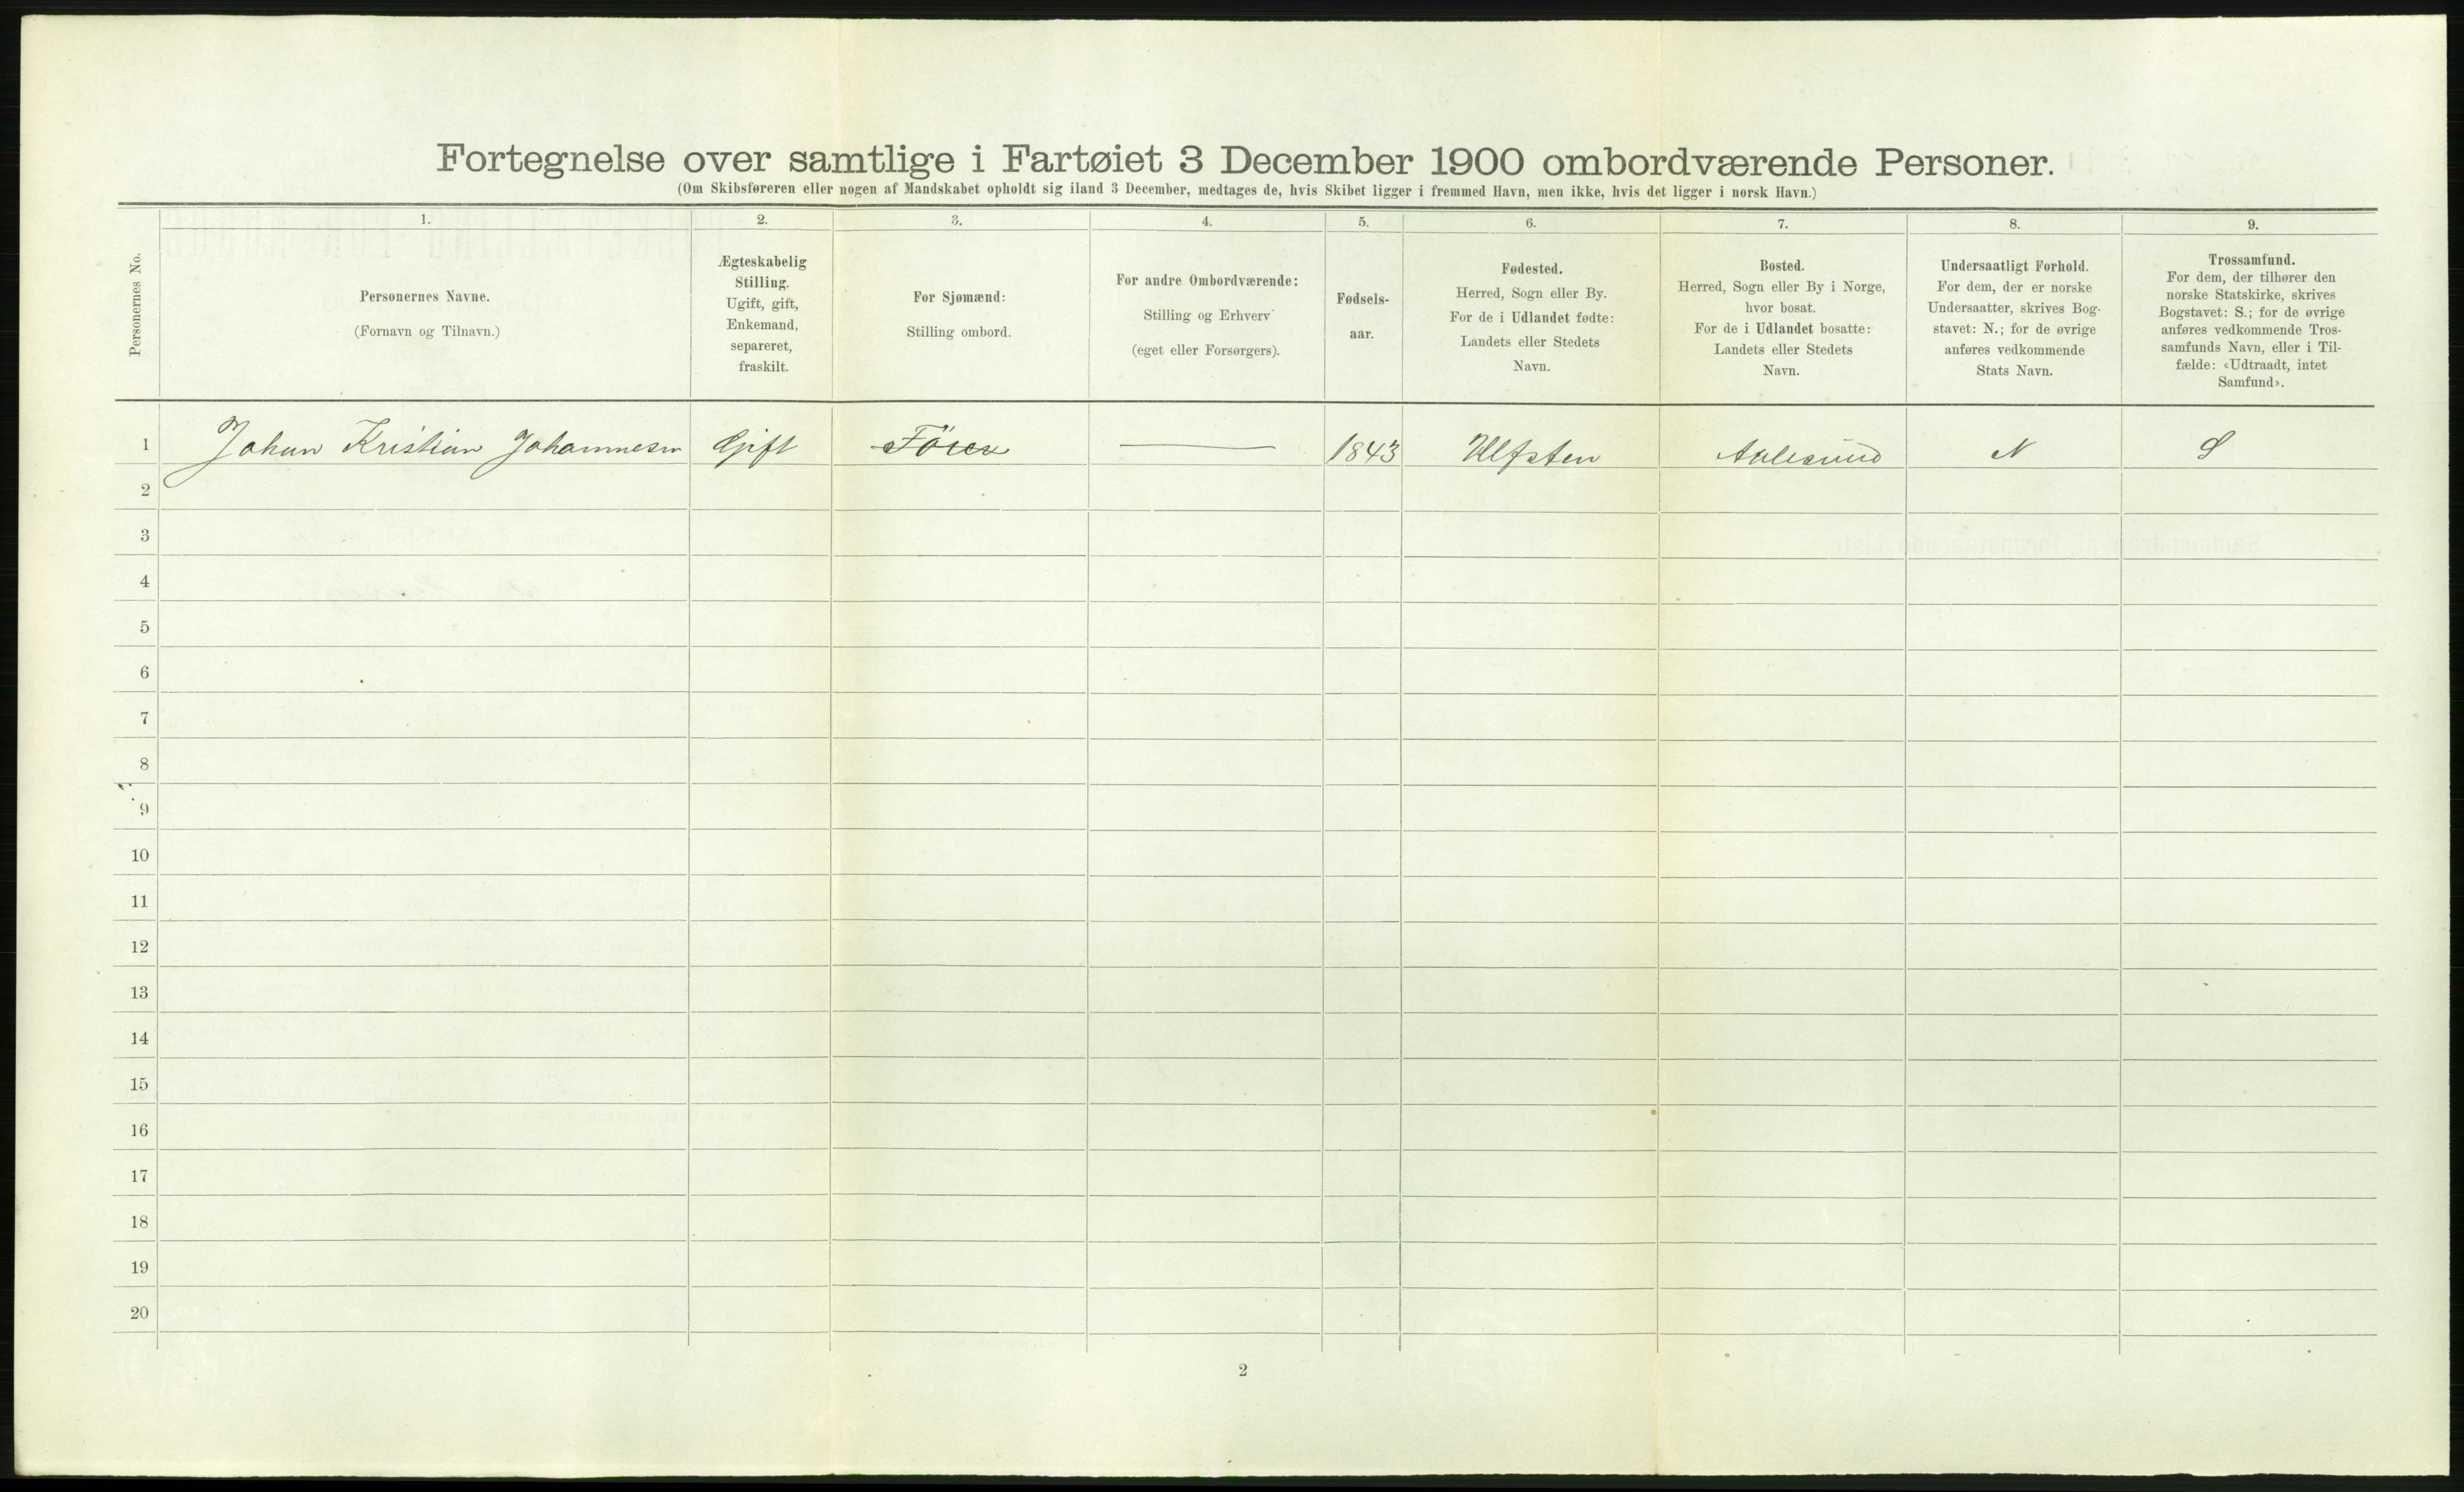 Fortegnelse over samtlige i Fartøiet 3 December 1900 ombordværende Personer.
(Om Skibsføreren eller nogen af Mandskabet opholdt sig iland 3 December, medtages de, hvis Skibet ligger i fremmed Havn, men ikke, hvis det ligger i norsk Havn.)
Personernes No.
1.
Personernes Navne.
(Fornavn og Tilnavn.)
2.
Ægteskabelig
Stilling.
Ugift, gift,
Enkemand,
separeret,
fraskilt.
3.
For Sjømænd:
Stilling ombord.
4.
For andre Ombordværende:
Stilling og Erhverv
(eget eller Forsørgers).
5.
Fødsels-
aar.
6.
Fødested.
Herred, Sogn eller By.
For de i Udlandet fødte:
Landets eller Stedets
Navn.
7.
Bosted.
Herred, Sogn eller By i Norge,
hvor bosat.
For de i Udlandet bosatte:
Landets eller Stedets
Navn.
8.
Undersaatligt Forhold.
For dem, der er norske
Undersaatter, skrives Bog-
stavet: N.; for de øvrige
anføres vedkommende
Stats Navn.
9.
Trossamfund.
For dem, der tilhører den
norske Statskirke, skrives
Bogstavet: S.; for de øvrige
anføres vedkommende Tros-
samfunds Navn, eller i Til-
fælde: «Udtraadt, intet
Samfund».
1 Johan Kristian Johannesen Gift Förer — 1843 Ulfsten Aalesund N S
2
3
4
5
6
7
8
9
10
11
12
13
14
15
16
17
18
19
20
2